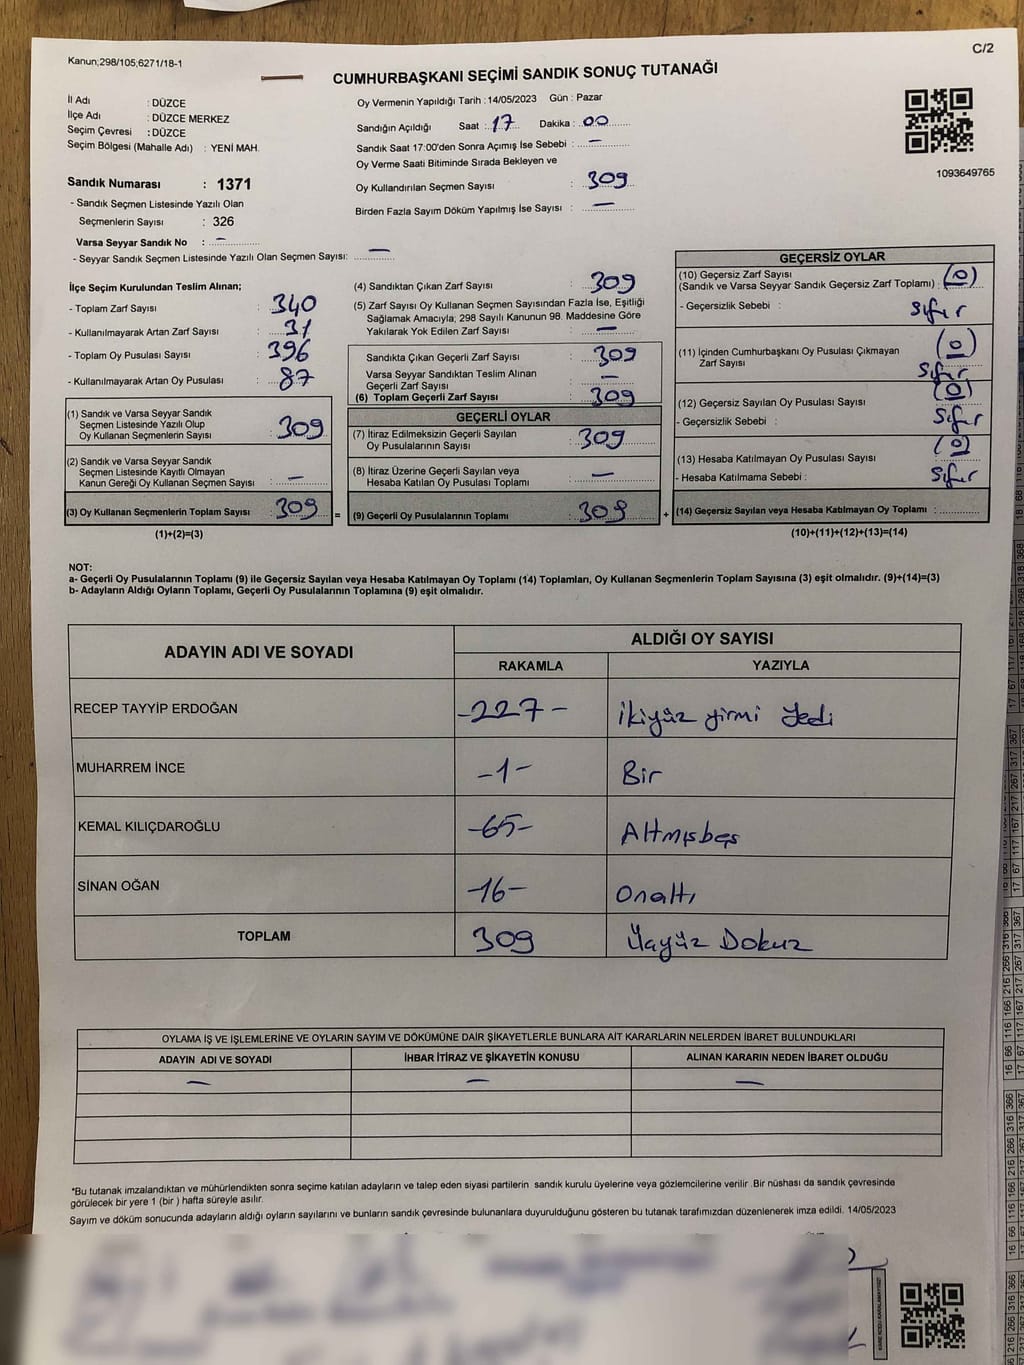 Kanun;298/105;6271/18-1
C/2
CUMHURBAŞKANI SEÇİMİ SANDIK SONUÇ TUTANAĞI
İl Adı : DÜZCE
İlçe Adı : DÜZCE MERKEZ
Seçim Çevresi : DÜZCE
Seçim Bölgesi (Mahalle Adı) : YENİ MAH.
Oy Vermenin Yapıldığı Tarih : 14/05/2023 Gün : Pazar
Sandığın Açıldığı Saat : 17 Dakika : 00
Sandık Saat 17:00'den Sonra Açımış İse Sebebi : –
Oy Verme Saati Bitiminde Sırada Bekleyen ve
Oy Kullandırılan Seçmen Sayısı : 309
Birden Fazla Sayım Döküm Yapılmış İse Sayısı : –
1093649765
Sandık Numarası : 1371
- Sandık Seçmen Listesinde Yazılı Olan
Seçmenlerin Sayısı : 326
Varsa Seyyar Sandık No : –
- Seyyar Sandık Seçmen Listesinde Yazılı Olan Seçmen Sayısı: –
İlçe Seçim Kurulundan Teslim Alınan;
- Toplam Zarf Sayısı : 340
- Kullanılmayarak Artan Zarf Sayısı : 31
- Toplam Oy Pusulası Sayısı : 396
- Kullanılmayarak Artan Oy Pusulası : 87
(1) Sandık ve Varsa Seyyar Sandık
Seçmen Listesinde Yazılı Olup
Oy Kullanan Seçmenlerin Sayısı : 309
(2) Sandık ve Varsa Seyyar Sandık
Seçmen Listesinde Kayıtlı Olmayan
Kanun Gereği Oy Kullanan Seçmen Sayısı : –
(3) Oy Kullanan Seçmenlerin Toplam Sayısı : 309 =
(1)+(2)=(3)
(4) Sandıktan Çıkan Zarf Sayısı : 309
(5) Zarf Sayısı Oy Kullanan Seçmen Sayısından Fazla İse, Eşitliği
Sağlamak Amacıyla; 298 Sayılı Kanunun 98. Maddesine Göre
Yakılarak Yok Edilen Zarf Sayısı : –
Sandıkta Çıkan Geçerli Zarf Sayısı : 309
Varsa Seyyar Sandıktan Teslim Alınan
Geçerli Zarf Sayısı : –
(6) Toplam Geçerli Zarf Sayısı : 309
GEÇERLİ OYLAR
(7) İtiraz Edilmeksizin Geçerli Sayılan
Oy Pusulalarının Sayısı : 309
(8) İtiraz Üzerine Geçerli Sayılan veya
Hesaba Katılan Oy Pusulası Toplamı : –
(9) Geçerli Oy Pusulalarının Toplamı : 309 +
GEÇERSİZ OYLAR
(10) Geçersiz Zarf Sayısı
(Sandık ve Varsa Seyyar Sandık Geçersiz Zarf Toplamı) : (0)
- Geçersizlik Sebebi : Sıfır
(11) İçinden Cumhurbaşkanı Oy Pusulası Çıkmayan (0)
Zarf Sayısı : Sıfır
(12) Geçersiz Sayılan Oy Pusulası Sayısı : (0)
- Geçersizlik Sebebi : Sıfır
(13) Hesaba Katılmayan Oy Pusulası Sayısı : (0)
- Hesaba Katılmama Sebebi : Sıfır
(14) Geçersiz Sayılan veya Hesaba Katılmayan Oy Toplamı :
(10)+(11)+(12)+(13)=(14)
NOT:
a- Geçerli Oy Pusulalarının Toplamı (9) ile Geçersiz Sayılan veya Hesaba Katılmayan Oy Toplamı (14) Toplamları, Oy Kullanan Seçmenlerin Toplam Sayısına (3) eşit olmalıdır. (9)+(14)=(3)
b- Adayların Aldığı Oyların Toplamı, Geçerli Oy Pusulalarının Toplamına (9) eşit olmalıdır.
ADAYIN ADI VE SOYADI ALDIĞI OY SAYISI
RAKAMLA YAZIYLA
RECEP TAYYİP ERDOĞAN -227- İkiyüz yirmi yedi
MUHARREM İNCE -1- Bir
KEMAL KILIÇDAROĞLU -65- Altmışbeş
SİNAN OĞAN -16- Onaltı
TOPLAM 309 Üçyüz Dokuz
OYLAMA İŞ VE İŞLEMLERİNE VE OYLARIN SAYIM VE DÖKÜMÜNE DAİR ŞİKAYETLERLE BUNLARA AİT KARARLARIN NELERDEN İBARET BULUNDUKLARI
ADAYIN ADI VE SOYADI İHBAR İTİRAZ VE ŞİKAYETİN KONUSU ALINAN KARARIN NEDEN İBARET OLDUĞU
– – –
*Bu tutanak imzalandıktan ve mühürlendikten sonra seçime katılan adayların ve talep eden siyasi partilerin sandık kurulu üyelerine veya gözlemcilerine verilir .Bir nüshası da sandık çevresinde
görülecek bir yere 1 (bir ) hafta süreyle asılır.
Sayım ve döküm sonucunda adayların aldığı oyların sayılarını ve bunların sandık çevresinde bulunanlara duyurulduğunu gösteren bu tutanak tarafımızdan düzenlenerek imza edildi. 14/05/2023